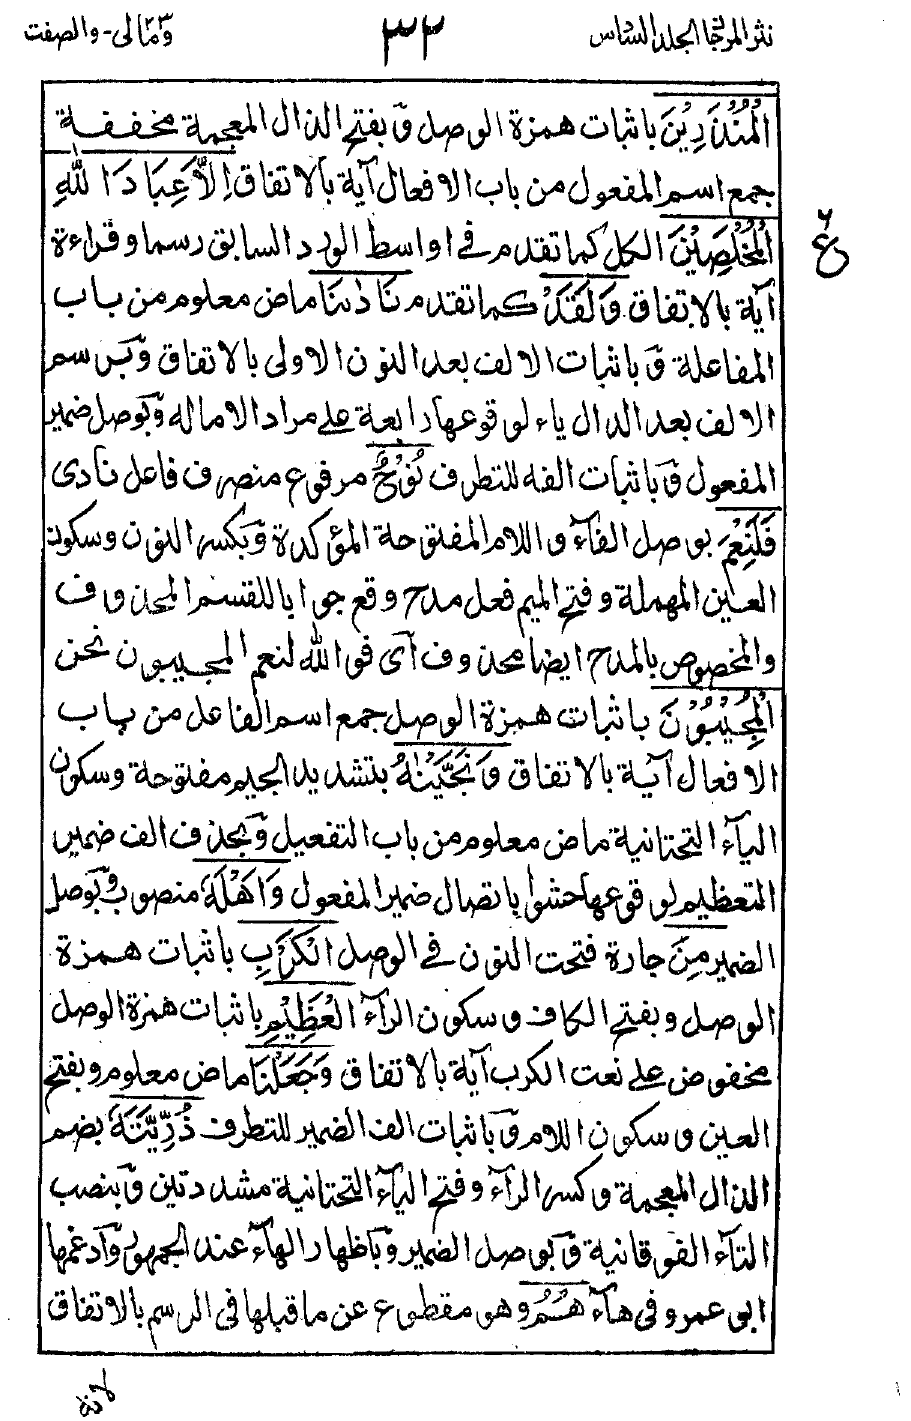 نثر المرجان الجلد السادس
٣٢
ومالى۲۳ - والصفت
الْمُنْذَرِيْنَ باثبات همزة الوصل وبفتح الذال المعجمة مخففة
جمع اسم المفعول من باب الافعال آية بالاتفاق اِلَّا عِبَادَ اللّٰهِ
الْمُخْلَصِيْنَ الكل كما تقدم فى اواسط الورد السابق رسما وقراءة
آية بالاتفاق وَلَقَدْ كما تقدم نَادٰىنَا ماض معلوم من باب
المفاعلة وباثبات الالف بعد النون الاولى بالاتفاق وبرسم
الالف بعد الدال ياء لوقوعها رابعة على مراد الامالة وبوصل ضمير
المفعول وباثبات الفه للتطرف نُوْحٌ مرفوع منصرف فاعل نادى
فَلَنِعْمَ بوصل الفآء واللام المفتوحة المؤكدة وبكسر النون وسكون
العين المهملة وفتح الميم فعل مدح وقع جوابا للقسم المحذوف
والمخصوص بالمدح ايضا محذوف آى فوالله لنعم المجيبون نحن
الْمُجِيْبُوْنَ باثبات همزة الوصل جمع اسم الفاعل من باب
الافعال آية بالاتفاق وَنَجَّيْنٰهُ بتشديد الجيم مفتوحة وسكون
اليآء التحتانية ماض معلوم من باب التفعيل وبحذف الف ضمير
التعظيم لوقوعها حشوا باتصال ضمير المفعول وَاَهْلَهٗ منصوب وبوصل
الضمير مِنَ جارة فتحت النون فى الوصل الْكَرْبِ باثبات همزة
الوصل وبفتح الكاف وسكون الرآء الْعَظِيْمِ باثبات همزة الوصل
مخفوض على نعت الكرب آية بالاتفاق وَجَعَلْنَا ماض معلوم وبفتح
العين وسكون اللام وباثبات الف الضمير للتطرف ذُرِّيَّتَهٗ بضم
الذال المعجمة وكسر الرآء وفتح اليآء التحتانية مشددتين وبنصب
التآء الفوقانية وبوصل الضمير وباظهار الهآء عند الجمهور وادغمها
ابى عمرو فى هآء هُمُ وهو مقطوع عن ما قبلها فى الرسم بالاتفاق
ع